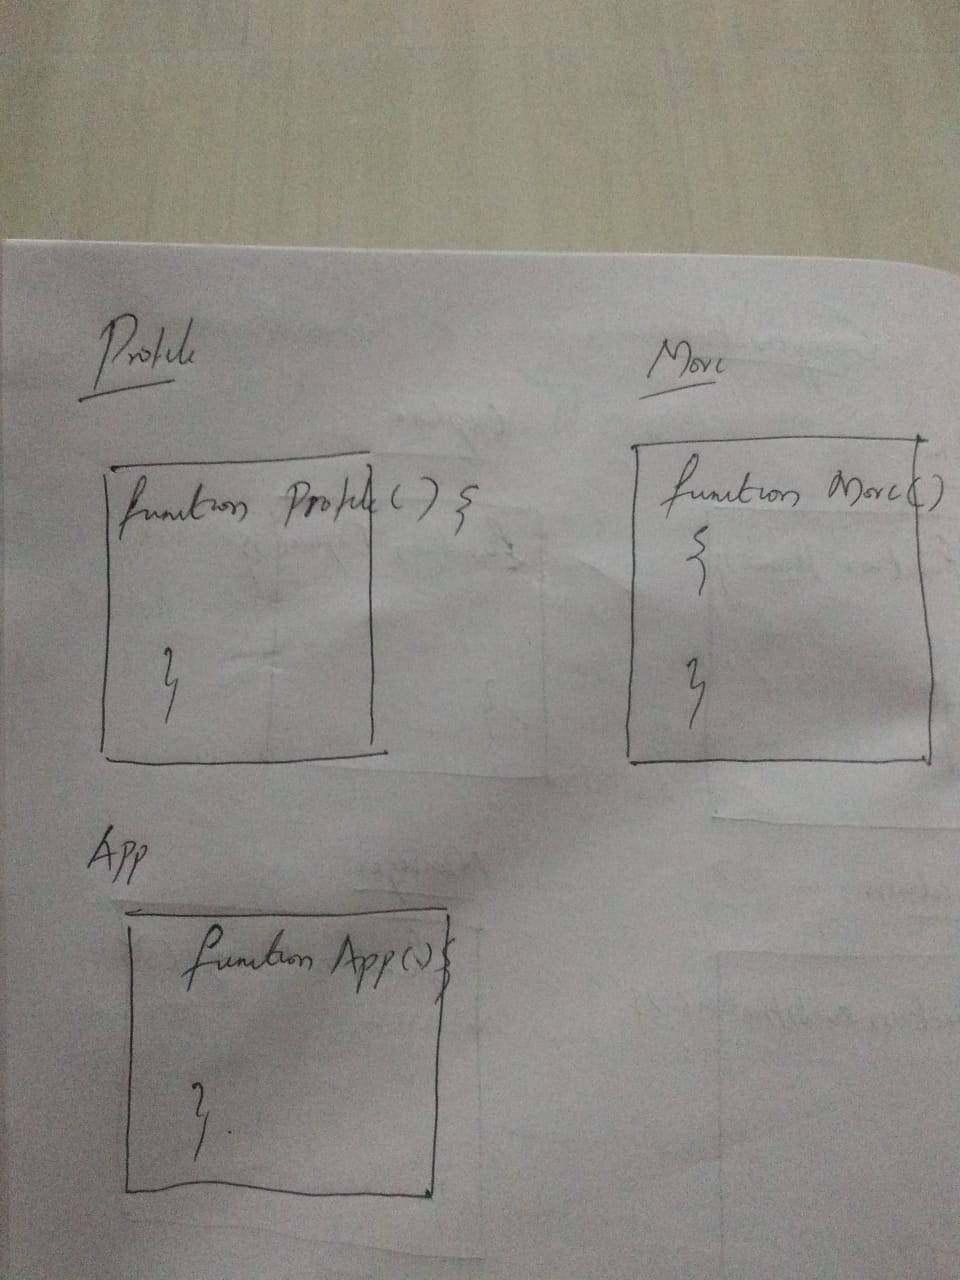 Profile
function Profile() {
}
More
function More()
{
}
App
function App() {
}.